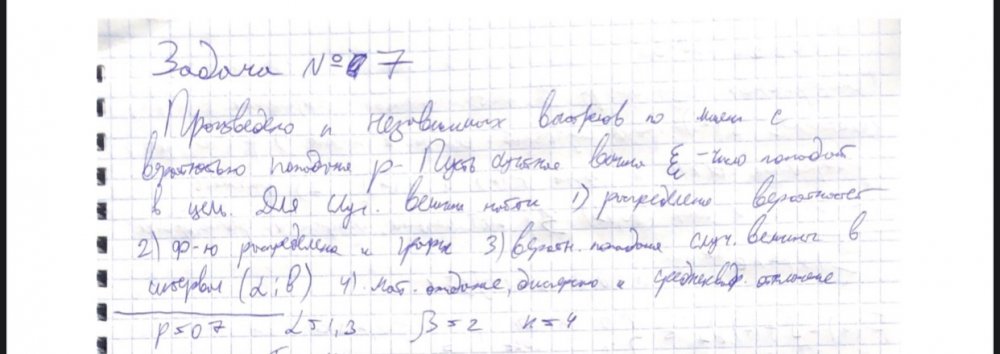 Задача № 7
Произведено n независимых выстрелов по мишени с
вероятностью попадания p. Пусть случайная величина ξ - число попаданий
в цель. Для случ. величины найти 1) распределение вероятностей
2) ф-ю распределения и график 3) вероятн. попадания случ. величины в
интервал (α; β) 4) мат. ожидание, дисперсию и среднеквадр. отклонение
p=0,7 α=1,3 β=2 n=4